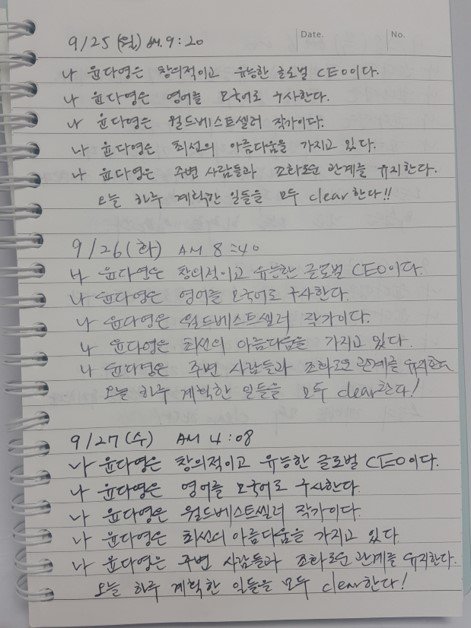 Date.
No.
9/25 (월) AM. 9:20
나 윤다영은 창의적이고 유능한 글로벌 CEO이다.
나 윤다영은 영어를 모국어로 구사한다.
나 윤다영은 월드베스트셀러 작가이다.
나 윤다영은 최선의 아름다움을 가지고 있다.
나 윤다영은 주변 사람들과 조화로운 관계를 유지한다.
오늘 하루 계획한 일들을 모두 clear한다!!
9/26 (화) AM 8:40
나 윤다영은 창의적이고 유능한 글로벌 CEO이다.
나 윤다영은 영어를 모국어로 구사한다.
나 윤다영은 월드베스트셀러 작가이다.
나 윤다영은 최선의 아름다움을 가지고 있다.
나 윤다영은 주변 사람들과 조화로운 관계를 유지한다
오늘 하루 계획한 일들을 모두 clear한다!
9/27 (수) AM 4:08
나 윤다영은 창의적이고 유능한 글로벌 CEO이다.
나 윤다영은 영어를 모국어로 구사한다.
나 윤다영은 월드베스트셀러 작가이다.
나 윤다영은 최선의 아름다움을 가지고 있다
나 윤다영은 주변 사람들과 조화로운 관계를 유지한다.
오늘 하루 계획한 일들을 모두 clear한다!